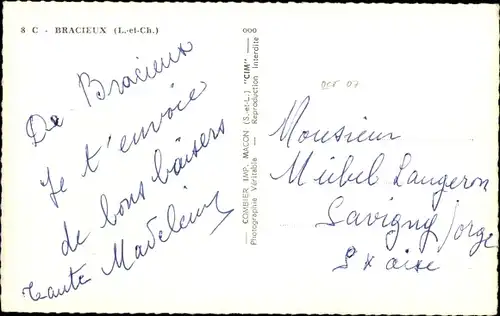 8 C - BRACIEUX (L.-et-Ch.)
De Bracieux
Je t'envoie
de bons baisers
tante Madeleine
— COMBIER IMP. MACON (S.-et-L.) "CIM" —
Photographie Véritable — Reproduction Interdite
Monsieur
Michel Langeron
Savigny Jorge